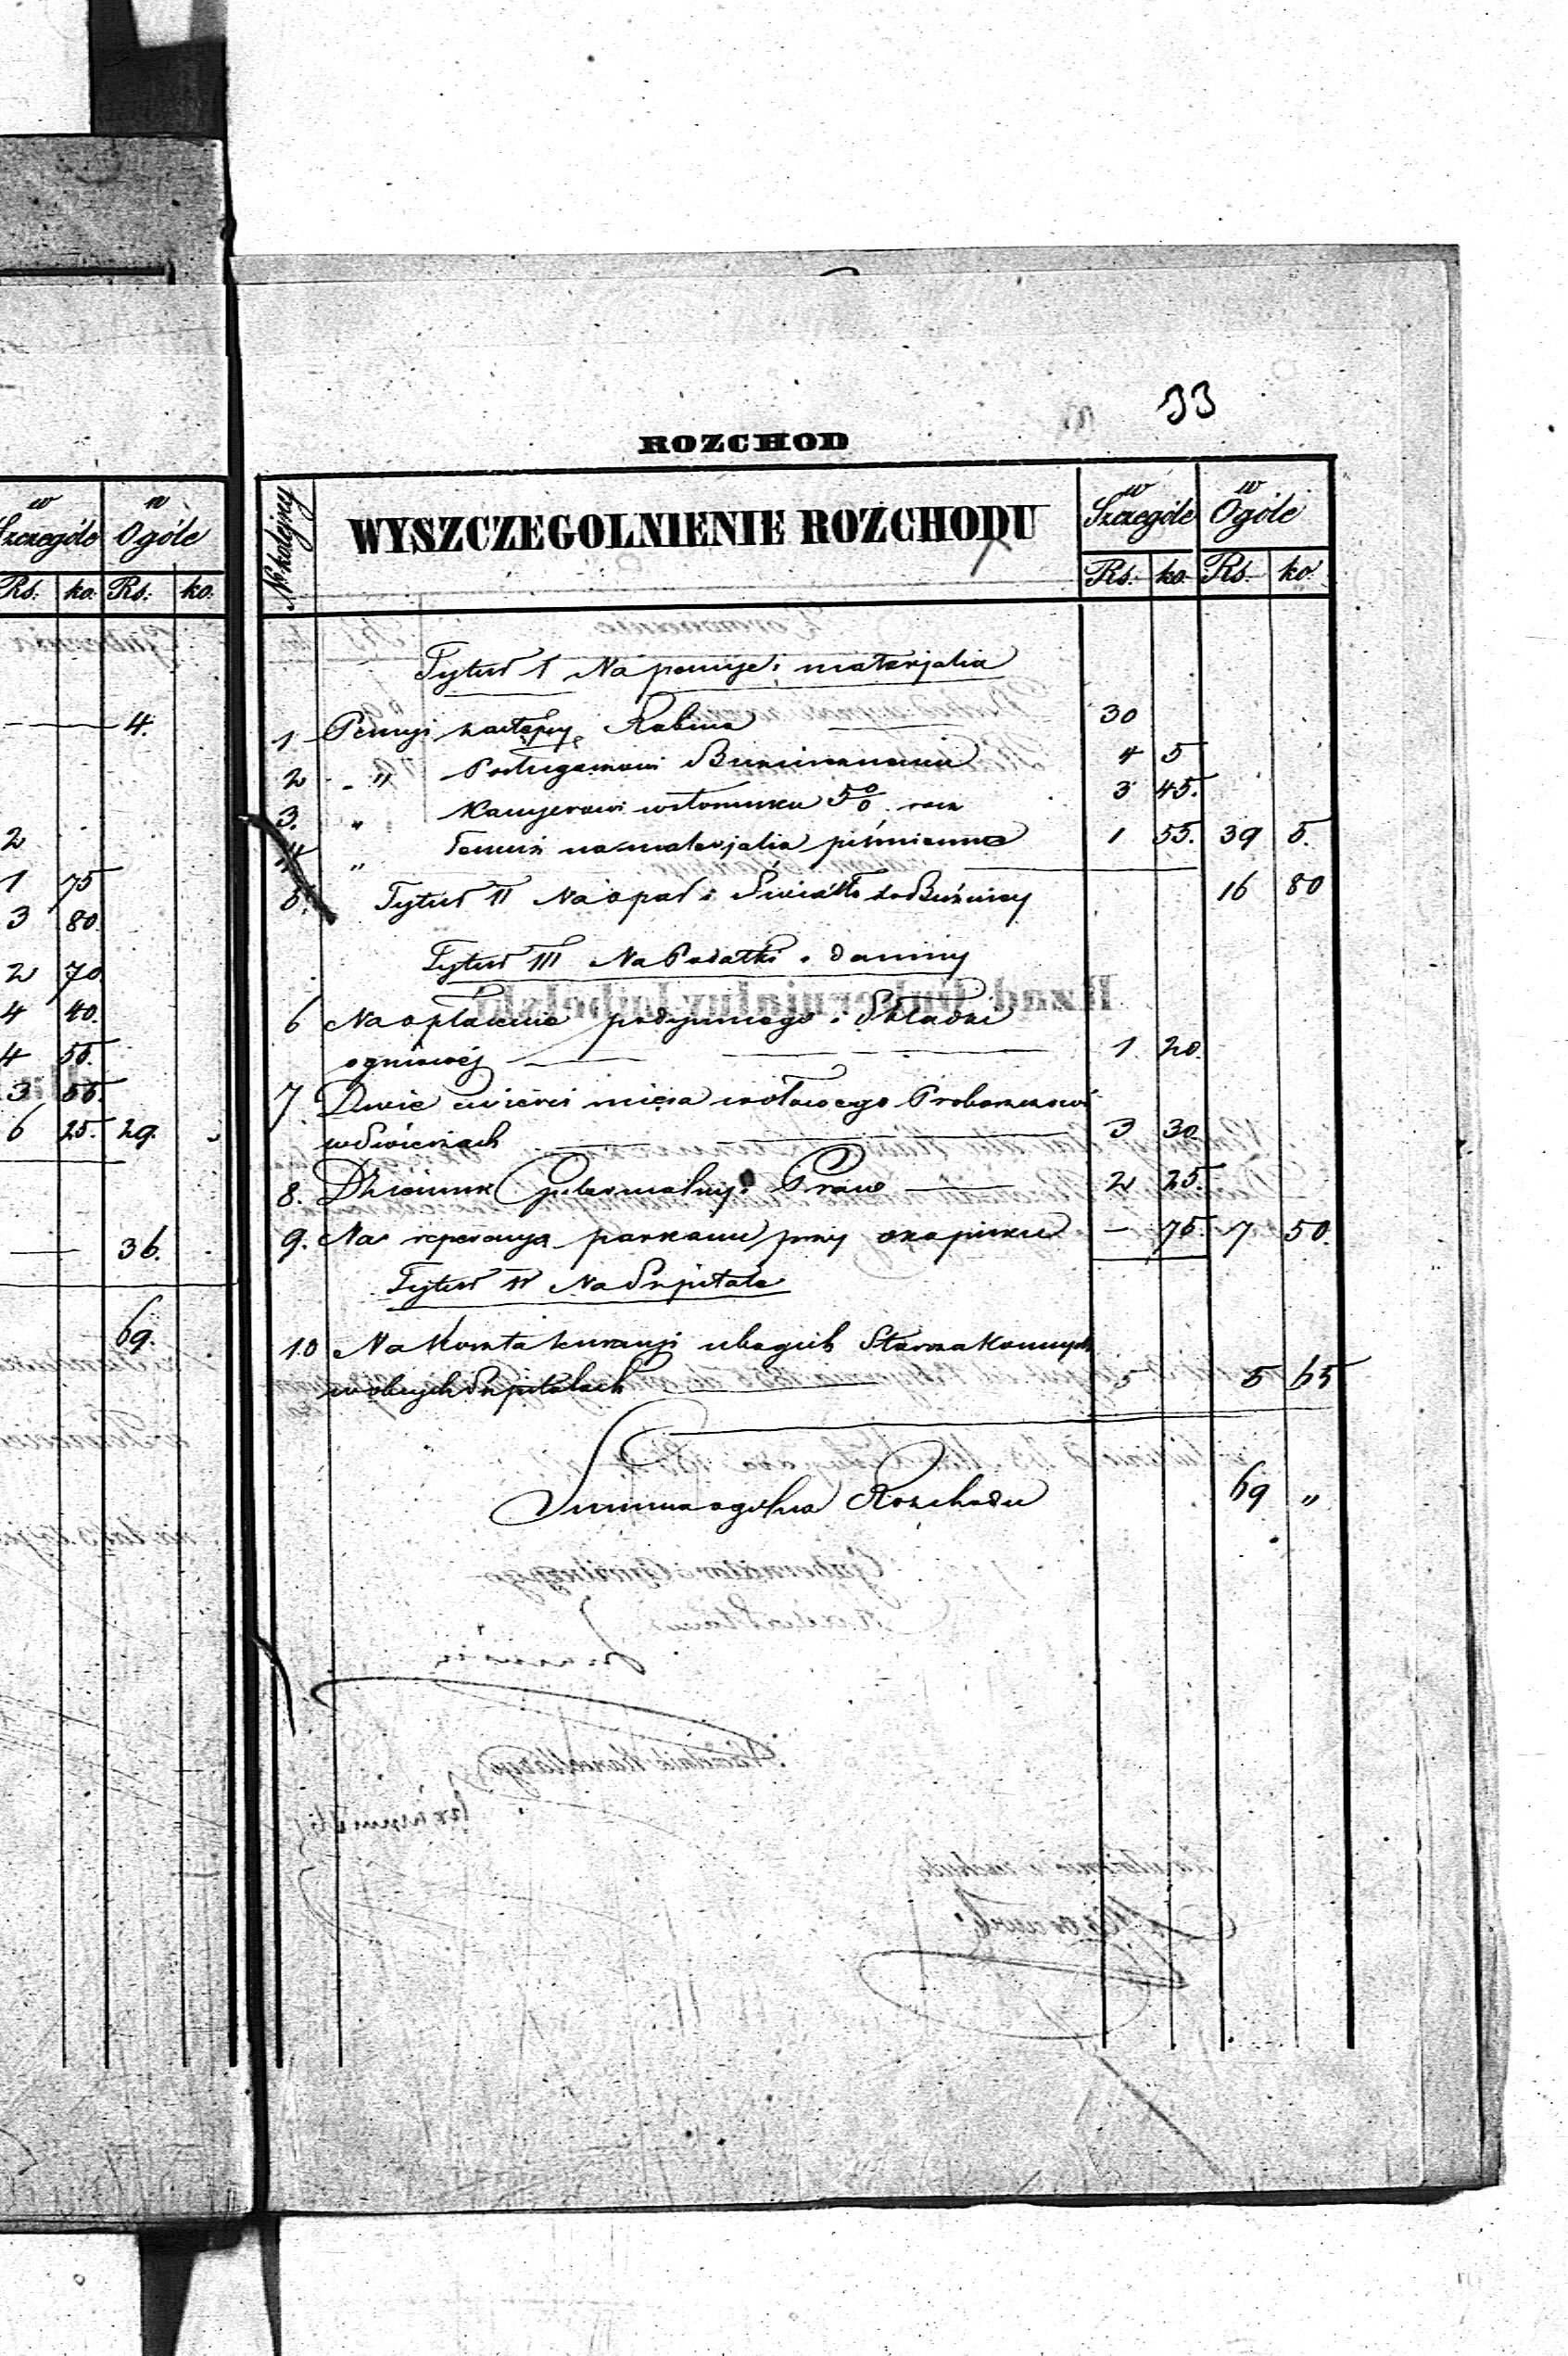 33
ROZCHOD
№ kolejny
WYSZCZEGOLNIENIE ROZCHODU
w Szczególe
w Ogóle
Rs. ko. Rs. ko.
Tytuł I Na pensyje i materjalia
1 Pensyi zastępcy Rabina — 30
2 " Posługaczowi Bużnicznemu 4 5
3. " Kassyerowi w stosunku 5 0/0 3 45.
4 " Temuż na materjalia piśmienne 1 55. 39 5.
5. Tytuł II Na opał i Światło do Bużnicy 16 80
Tytuł III Na Podatki i daniny
6 Na opłacenie podymnego i Składki
ogniowéj — 1. 20.
7. Dwie ćwierci mięsa wołowego Proboszczowi
w Świerżach — 3 30
8. Dziennik Gubernialny i Praw — 2 25.
9. Na reperacyą parkanu przy okopisku — 75. 7 50.
Tytuł IV Na Szpitale
10 Na koszta kuracyi ubogich Starozakonnych
w obcych Szpitalach — 5 5 65
Summa ogólna Rozchodu 69 "
w Szczególe
w Ogóle
Rs. ko. Rs. ko.
— 4.
2
1 75
3 80.
2 70.
4 40.
4 55.
3 55.
6 25. 29.
— 36.
69.